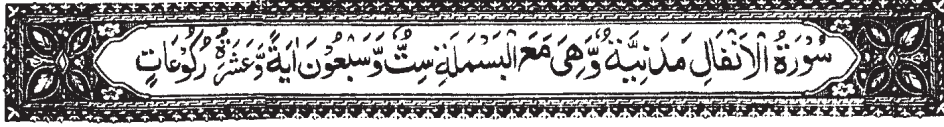 سُوْرَةُ الْاَنْفَالِ مَدَنِيَّةٌ وَّهِىَ مَعَ الْبَسْمَلَةِ سِتٌّ وَّسَبْعُوْنَ اٰيَةً وَّعَشَرَةُ رُكُوْعَاتٍ